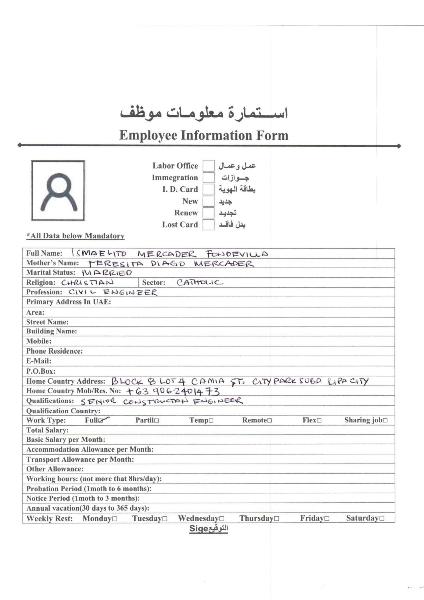 استمارة معلومات موظف
Employee Information Form
Labor Office عمل وعمال
Immegration جوازات
I. D. Card بطاقة الهوية
New جديد
Renew تجديد
Lost Card بدل فاقد
*All Data below Mandatory
Full Name: ISMAELITO MERCADER FONDEVILLA
Mother's Name: TERESITA DIAGO MERCADER
Marital Status: MARRIED
Religion: CHRISTIAN Sector: CATHOLIC
Profession: CIVIL ENGINEER
Primary Address In UAE:
Area:
Street Name:
Building Name:
Mobile:
Phone Residence:
E-Mail:
P.O.Box:
Home Country Address: BLOCK 8 LOT 4 CAMIA ST. CITY PARK SUBD LIPA CITY
Home Country Mob/Res. No: +63 9062401473
Qualifications: SENIOR CONSTRUCTAN ENGINEER
Qualification Country:
Work Type: Full☑ Partil□ Temp□ Remote□ Flex□ Sharing job□
Total Salary:
Basic Salary per Month:
Accommodation Allowance per Month:
Transport Allowance per Month:
Other Allowance:
Working hours: (not more that 8hrs/day):
Probation Period (1moth to 6 months):
Notice Period (1moth to 3 months):
Annual vacation(30 days to 365 days):
Weekly Rest: Monday□ Tuesday□ Wednesday□ Thursday□ Friday□ Saturday□
Sigeالتوقيع